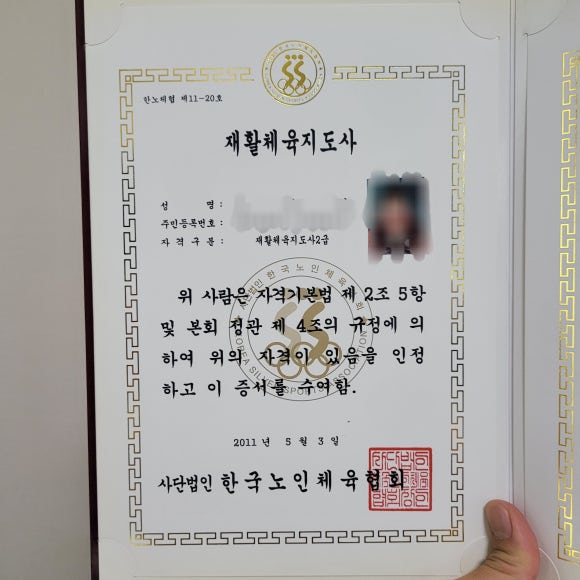 한노체협 제11-20호
재활체육지도사
성 명 :
주민등록번호 :
자격구분 : 재활체육지도사2급
위 사람은 자격기본법 제 2조 5항
및 본회 정관 제 4조의 규정에 의
하여 위의 자격이 있음을 인정
하고 이 증서를 수여함.
사단법인 한국노인체육협회
KOREA SILVER SPORTS ASSOCIATION
2011 년 5 월 3 일
사단법인 한국노인체육협회